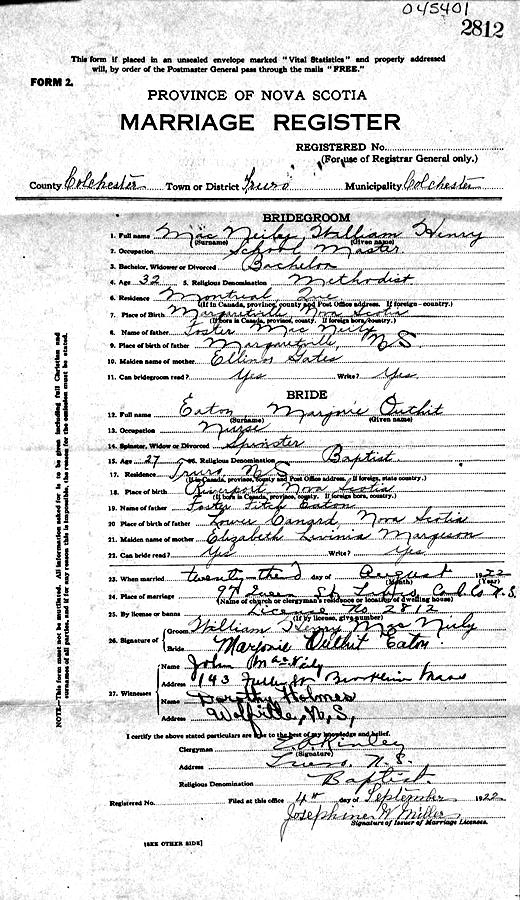 045401
2812
This form if placed in an unsealed envelope marked "Vital Statistics" and properly addressed
will, by order of the Postmaster General pass through the mails "FREE."
FORM 2.
PROVINCE OF NOVA SCOTIA
MARRIAGE REGISTER
REGISTERED No.
(For use of Registrar General only.)
County Colchester Town or District Truro Municipality Colchester
BRIDEGROOM
1. Full name Mac Neily, William Henry
(Surname) (Given name)
2. Occupation School Master
3. Bachelor, Widower or Divorced Bachelor
4. Age 32 5. Religious Denomination Methodist
6. Residence Montreal, Que
(If in Canada, province, county and Post Office address. If foreign country.)
7. Place of Birth Margaretville Nova Scotia
(If born in Canada, province, county. If foreign born, country.)
8. Name of father Foster Mac Neily
9. Place of birth of father Margaretville, N.S.
10. Maiden name of mother Gates
11. Can bridegroom read? Yes Write? Yes
BRIDE
12. Full name Eaton, Marjorie Outhit
(Surname) (Given name)
13. Occupation Nurse
14. Spinster, Widow or Divorced Spinster
15. Age 27 16. Religious Denomination Baptist
17. Residence Truro N.S.
(If in Canada, province, county and Post Office address. If foreign, state country.)
18. Place of birth Riverport Nova Scotia
(If born in Canada, province, county. If foreign born, country.)
19. Name of father Foster Fitch Eaton
20. Place of birth of father Lower Canard, Nova Scotia
21. Maiden name of mother Elizabeth Lavinia Margeson
22. Can bride read? Yes Write? Yes
23. When married twenty third day of August 1922
(Month) (Year)
24. Place of marriage Queen St. N.S.
(Name of church or clergyman's residence or location of dwelling house)
25. By license or banns License No 2812
(If by license, give number)
26. Signature of Groom William Henry Mac Neily
Bride Marjorie Outhit Eaton
27. Witnesses Name John MacNeily
Address 143 Brookline Mass
Name Dorothy Holmes
Address Wolfville, N.S,
I certify the above stated particulars are true to the best of my knowledge and belief.
Clergyman Kinley
(Signature)
Address Truro. N.S.
Religious Denomination Baptist
Registered No. Filed at this office 4th day of September 1922
Josephine W. Miller
Signature of Issuer of Marriage Licenses.
[SEE OTHER SIDE]
NOTE.—This form must not be mutilated. All information asked for is to be given including full Christian and
surnames of all parties, and if for any reason this is impossible, the reason for the omission must be stated.